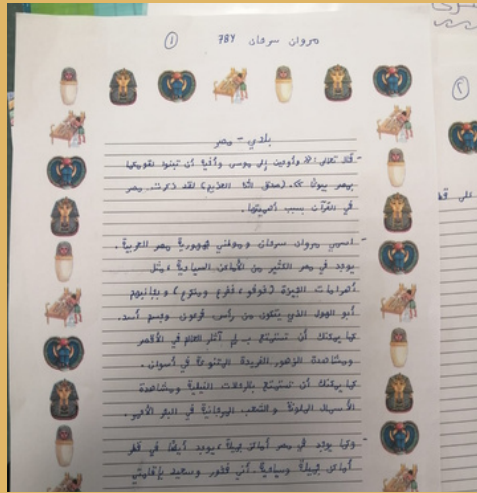 مروان سرحان 7B4 ①
بلدي - مصر
- قال تعالى الله وأوحينا إلى موسى وأخيه أن تبوءا لقومكما
بمصر بيوتا >>. (صدق الله العظيم) لقد ذكرت مصر
في القرآن بسبب أهميتها.
- اسمي مروان سرحان وموطني جمهورية مصر العربية.
يوجد في مصر الكثير من الأماكن السياحية، مثل
أهرامات الجيزة (خوفو، خفرع ومنقرع) وبجانبهم
أبو الهول الذي يتكون من رأس فرعون وجسم أسد.
كما يمكنك أن تستمتع بـ آثار العالم في الأقصر
ومشاهدة الزهور الفريدة المتنوعة في أسوان.
كما يمكنك أن تستمتع بالرحلات النيلية ومشاهدة
الأسماك الملونة والشعب المرجانية في البحر الأحمر.
- وكما يوجد في مصر أماكن جميلة، يوجد أيضا في قطر
أماكن جميلة وسياحية. أنا فخور وسعيد بإقامتي
②
على قط